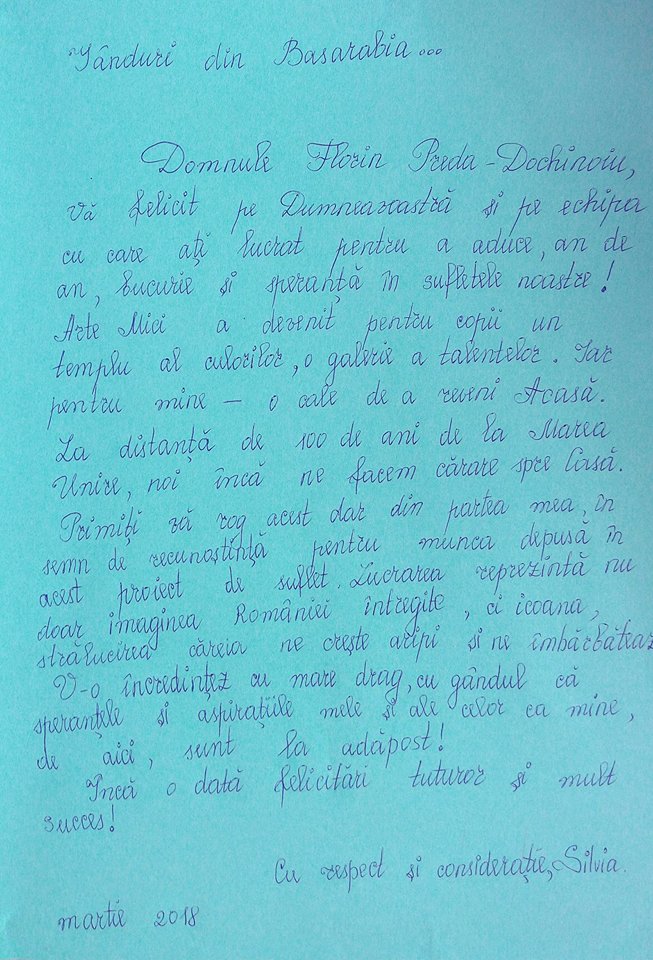 "Gânduri din Basarabia...
Domnule Florin Preda-Dochinoiu,
Vă felicit pe Dumneavoastră și pe echipa
cu care ați lucrat pentru a aduce, an de
an, bucurie și speranță în sufletele noastre!
Arte Mici a devenit pentru copii un
templu al culorilor, o galerie a talentelor. Iar
pentru mine – o cale de a reveni Acasă.
La distanță de 100 de ani de la Marea
Unire, noi încă ne facem cărare spre Casă.
Primiți vă rog acest dar din partea mea, în
semn de recunoștință pentru munca depusă în
acest proiect de suflet. Lucrarea reprezintă nu
doar imaginea României întregite, ci icoana,
strălucirea căreia ne crește aripi și ne îmbărbătează
V-o încredințez cu mare drag, cu gândul că
speranțele și aspirațiile mele și ale celor ca mine,
de aici, sunt la adăpost!
Încă o dată felicitări tuturor și mult
succes!
Cu respect și considerație, Silvia.
martie 2018